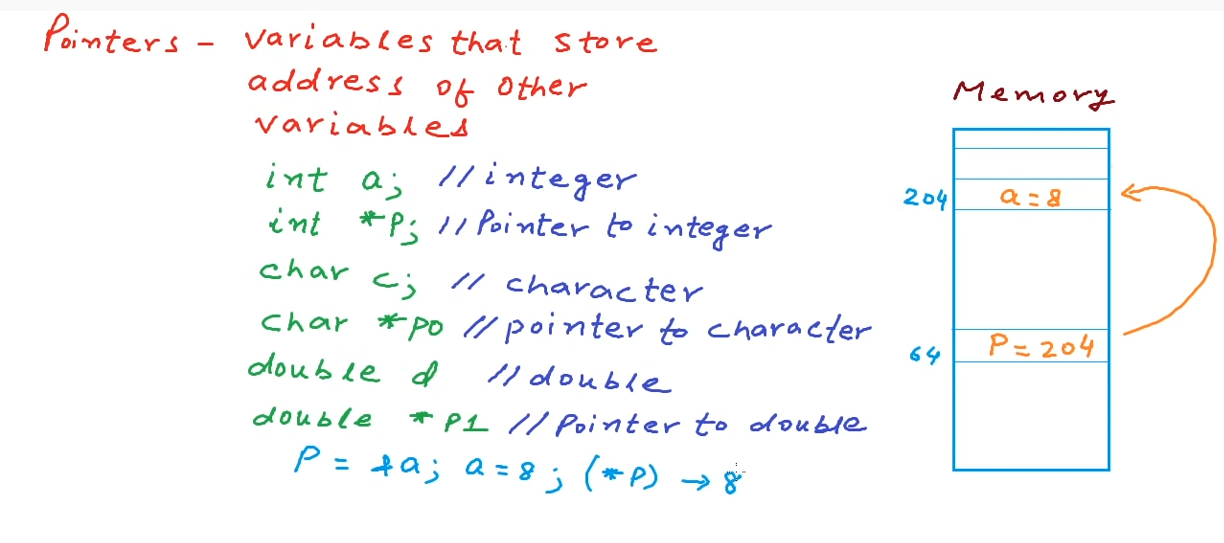 Pointers - variables that store
address of other
variables
int a; //integer
int *P; // Pointer to integer
char c; // character
char *po // pointer to character
double d // double
double *p1 // Pointer to double
P = &a; a = 8; (*P) → 8
Memory
204 a = 8
64 P = 204